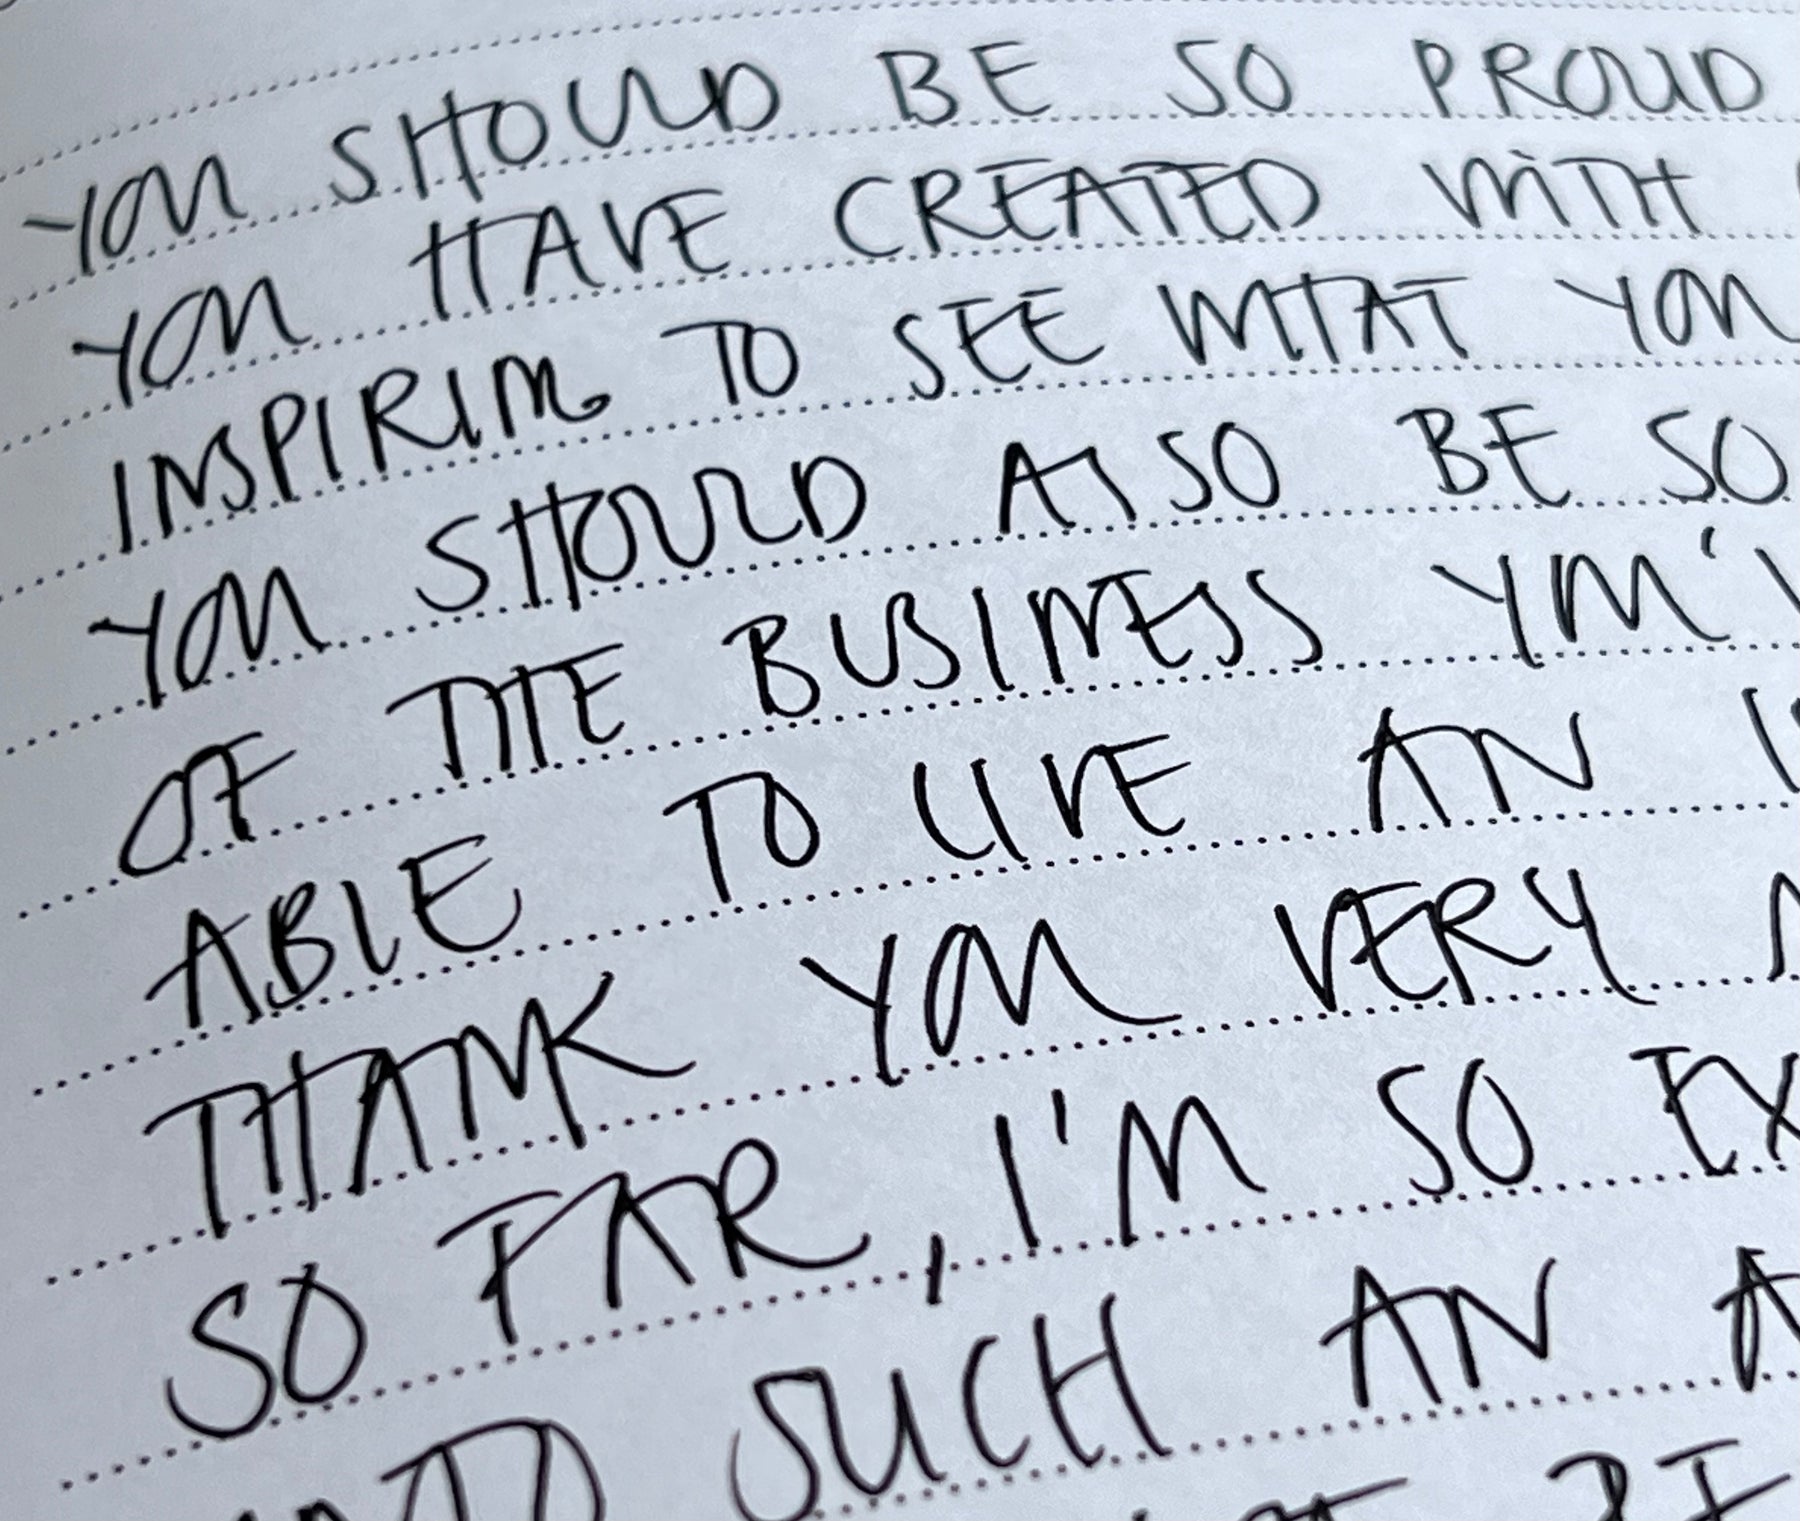 YOU SHOULD BE SO PROUD
YOU HAVE CREATED WITH
INSPIRING TO SEE WHAT YOU
YOU SHOULD ALSO BE SO
OF THE BUSINESS YOU'V
ABLE TO LIVE AN
THANK YOU VERY
SO FAR, I'M SO EX
INTO SUCH AN A
BE